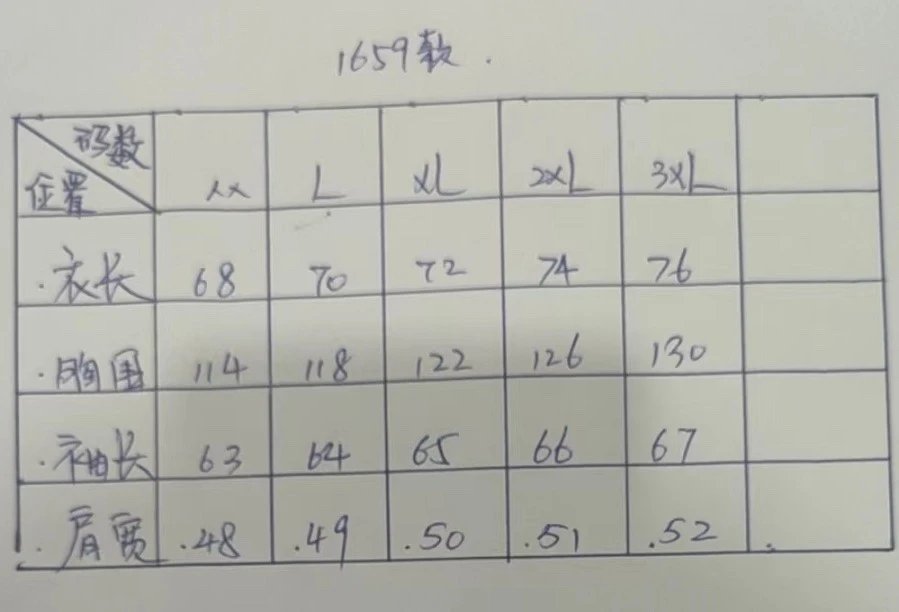 1659款.
码数
位置 XX L XL 2XL 3XL
.衣长 68 70 72 74 76
.胸围 114 118 122 126 130
.袖长 63 64 65 66 67
.肩宽 .48 .49 .50 .51 .52